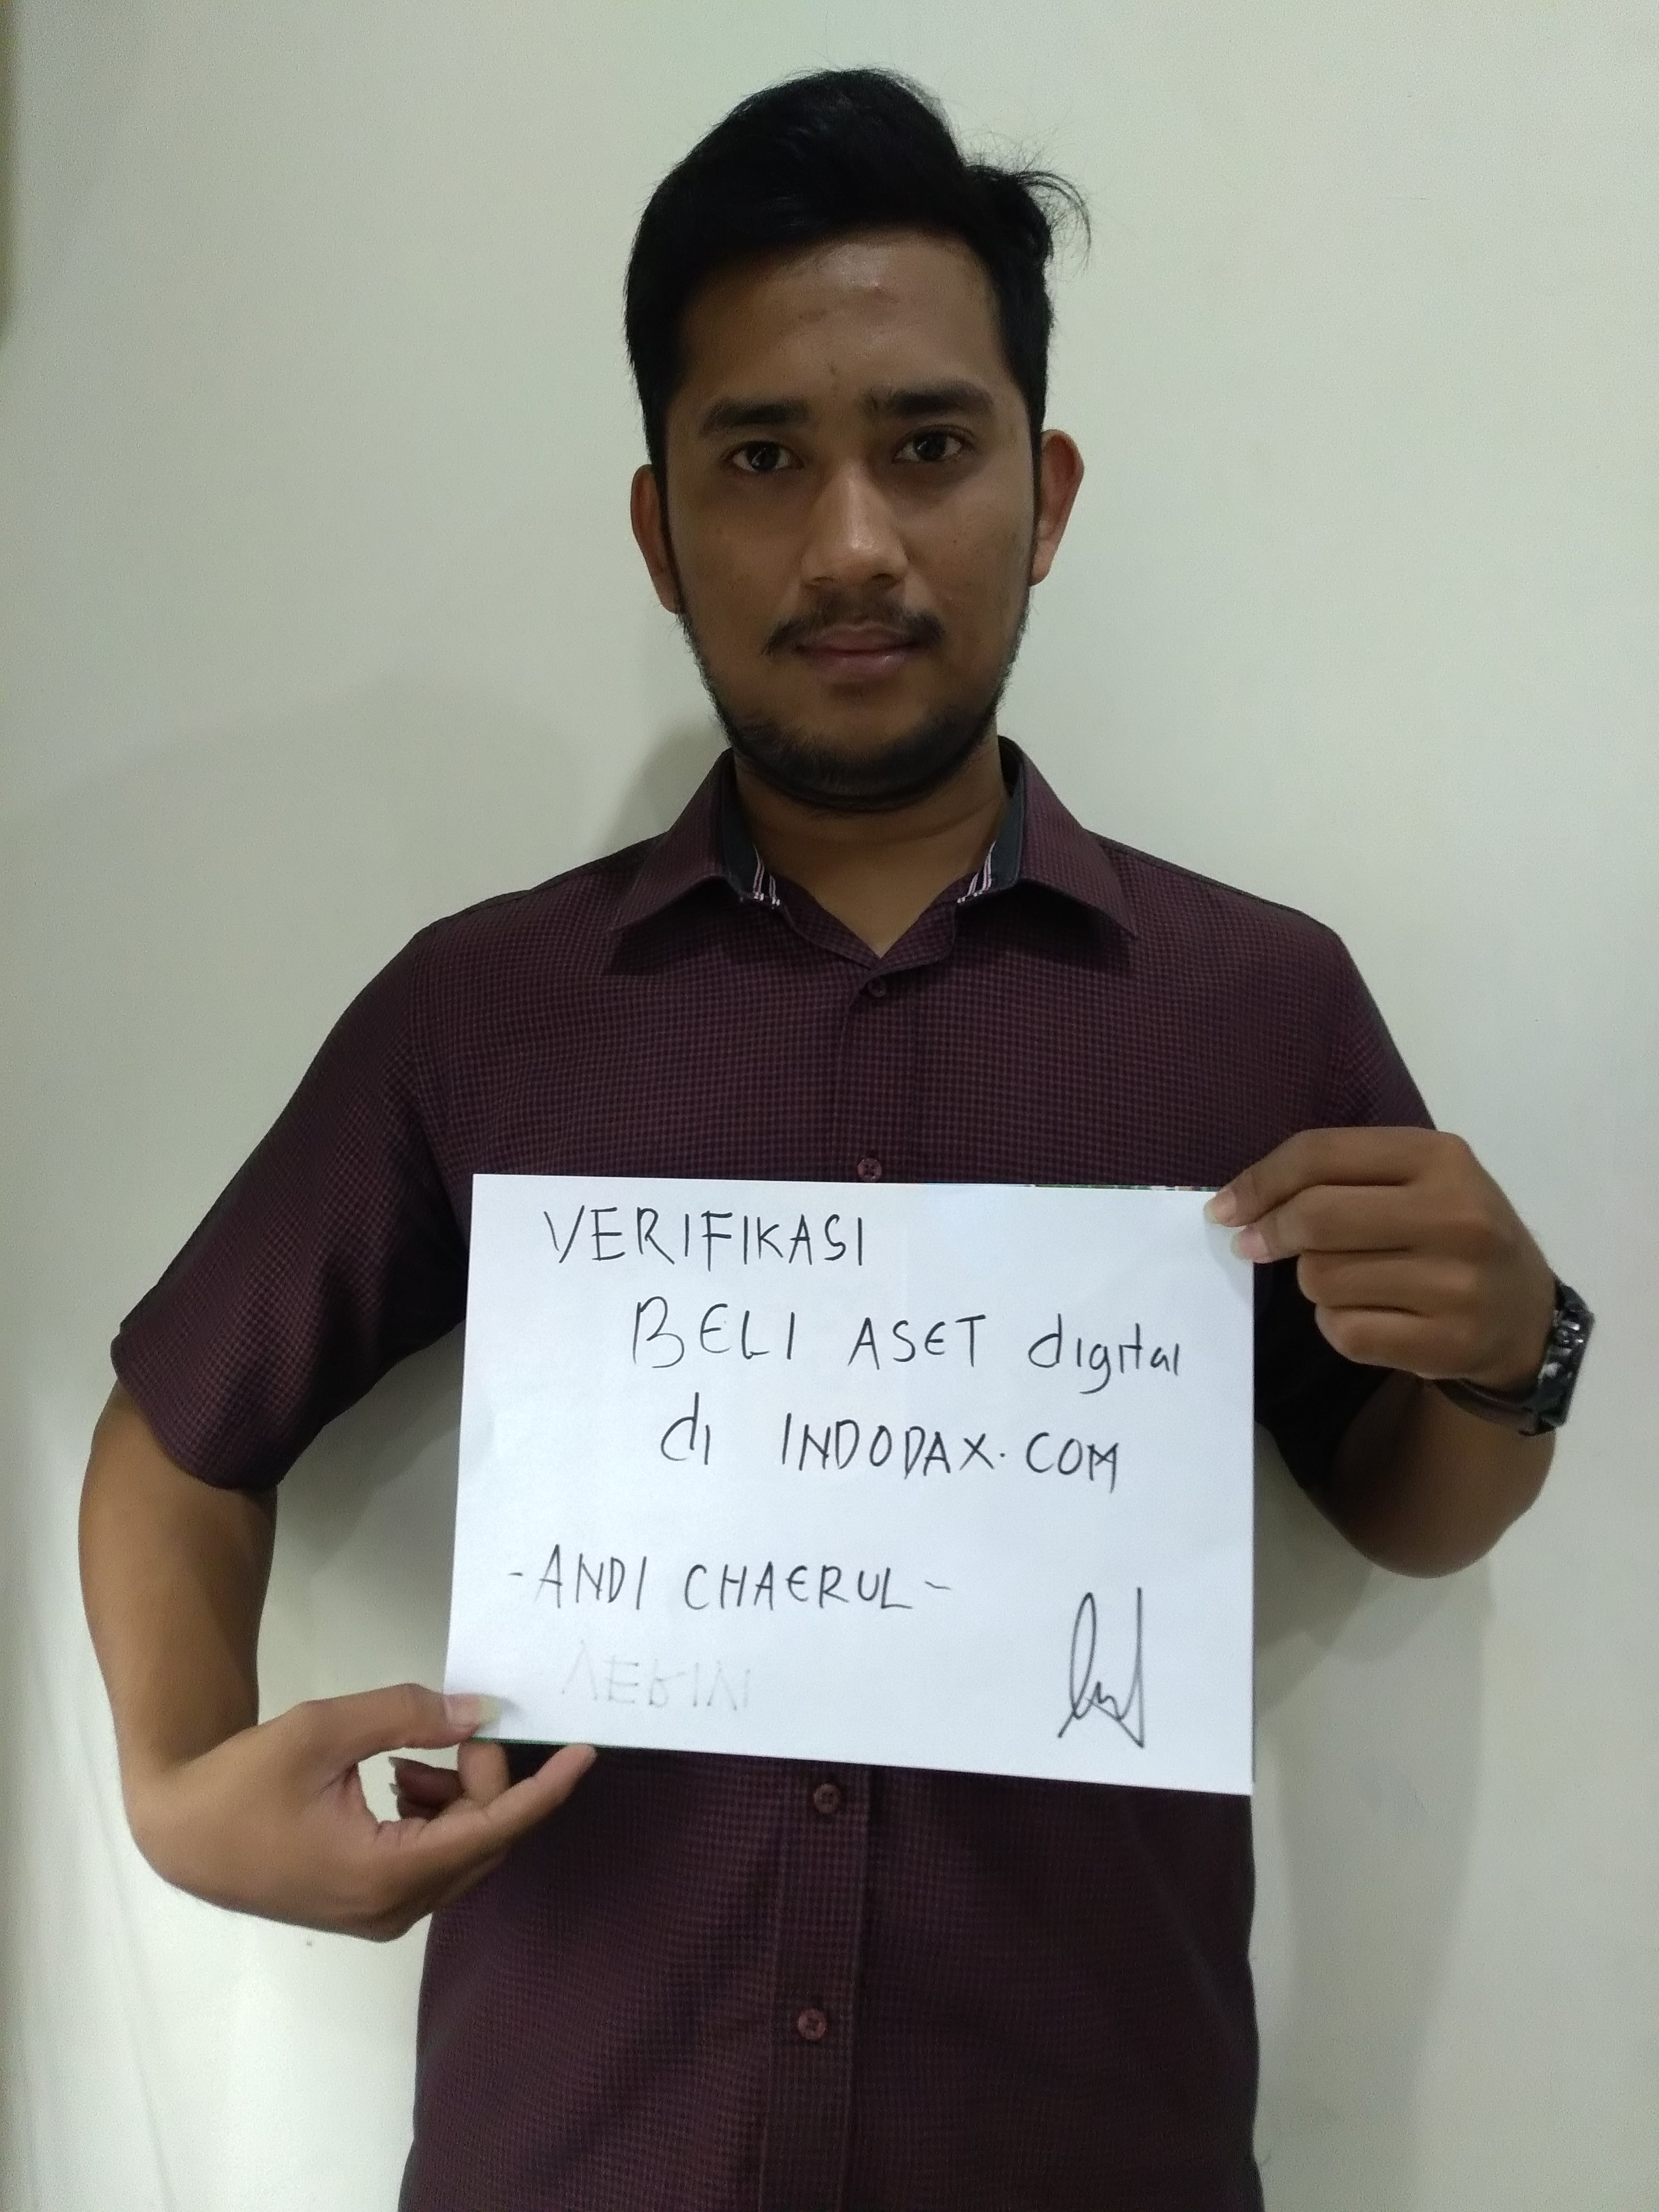 VERIFIKASI
BELI ASET digital
di INDODAX.COM
-ANDI CHAERUL-